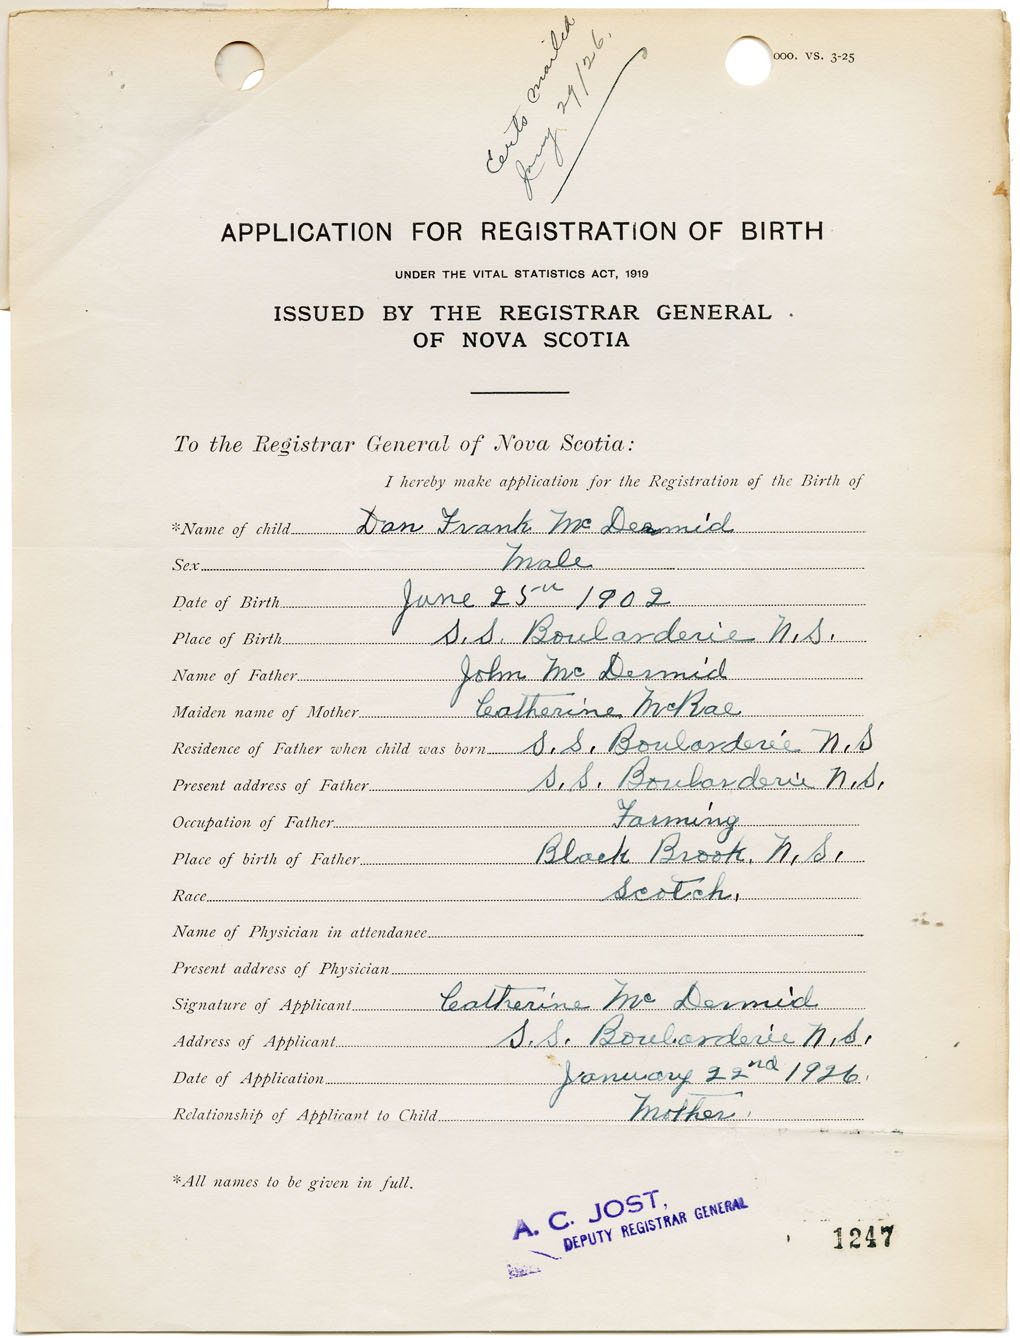 Certs mailed
Jany 29/26.
000. VS. 3-25
APPLICATION FOR REGISTRATION OF BIRTH
UNDER THE VITAL STATISTICS ACT, 1919
ISSUED BY THE REGISTRAR GENERAL
OF NOVA SCOTIA
To the Registrar General of Nova Scotia:
I hereby make application for the Registration of the Birth of
*Name of child Dan Frank Mc Dermid
Sex Male
Date of Birth June 25th 1902
Place of Birth S.S. Boularderie N.S.
Name of Father John Mc Dermid
Maiden name of Mother Catherine McRae
Residence of Father when child was born S.S. Boularderie N.S
Present address of Father S.S. Boularderie N.S.
Occupation of Father Farming
Place of birth of Father Black Brook, N.S.
Race Scotch.
Name of Physician in attendance
Present address of Physician
Signature of Applicant Catherine Mc Dermid
Address of Applicant S.S. Boularderie N.S.
Date of Application January 22nd 1926.
Relationship of Applicant to Child Mother.
*All names to be given in full.
A. C. JOST,
DEPUTY REGISTRAR GENERAL
1247